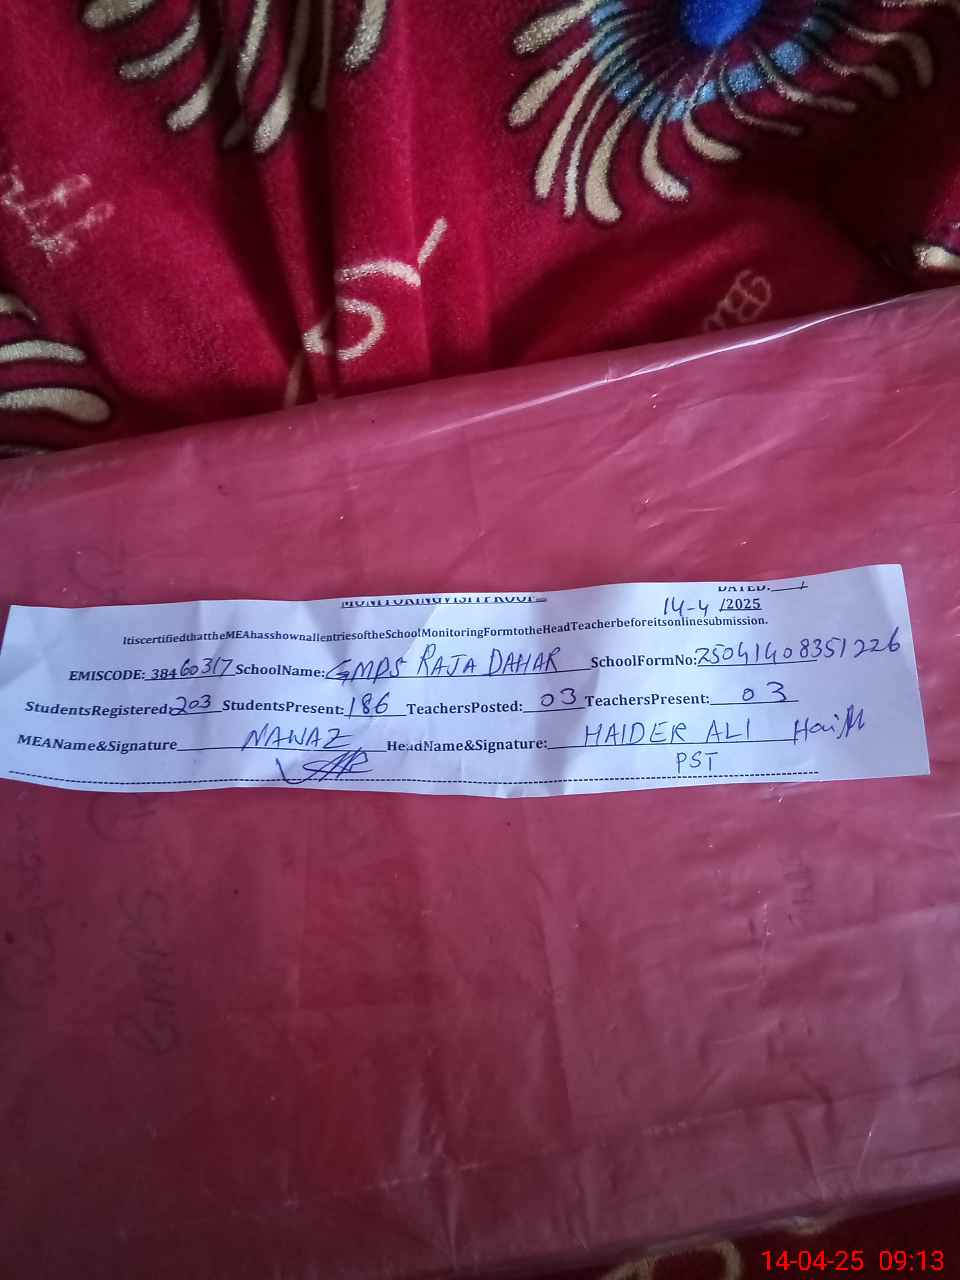 MONITORINGVISITPROOF
DATED:
14-4 /2025
ItiscertifiedthattheMEAhasshownallentriesoftheSchoolMonitoringFormtotheHeadTeacherbeforeitsonlinesubmission.
EMISCODE: 38460317 SchoolName: GMPS RAJA DAHAR SchoolFormNo: 25041408351226
StudentsRegistered: 203 StudentsPresent: 186 TeachersPosted: 03 TeachersPresent: 03
MEAName&Signature NAWAZ HeadName&Signature: HAIDER ALI
PST
14-04-25 09:13